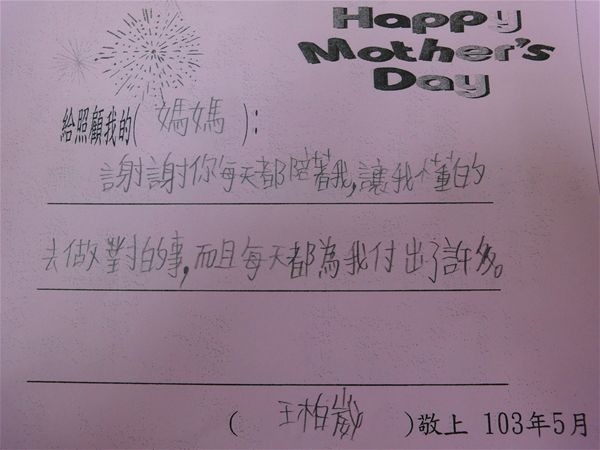 Happy
Mother's
Day
給照顧我的(媽媽):
謝謝你每天都陪著我,讓我懂的
去做對的事,而且每天都為我付出了許多。
(王柏崴)敬上 103年5月